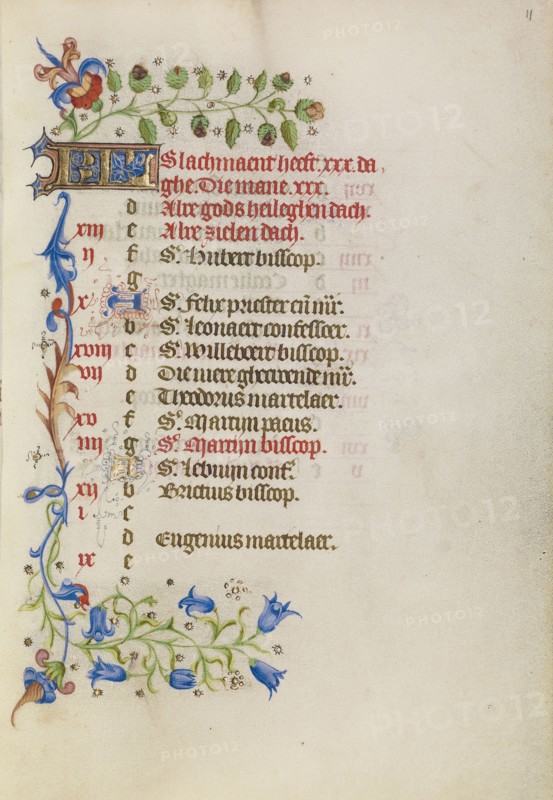 11
KL Slachmaent heeft .xxx. da
ghe. Die mane .xxx.
d Alre gods heileghen dach.
xiii e Alre zielen dach.
ij f S. Hubert bisscop.
g
x A S. Felix priester en mr.
b S. Leonaert confessoer.
xviii c S. Willeboert bisscop.
vij d Die viere gheroende mr.
e Theodorus martelaer.
xv f S. Martijn paeus.
iiij g S. Martijn bisscop.
A S. Lebuijn conf.
xij b Brictius bisscop.
i c
d Eugenius martelaer.
ix e
PHOTO12